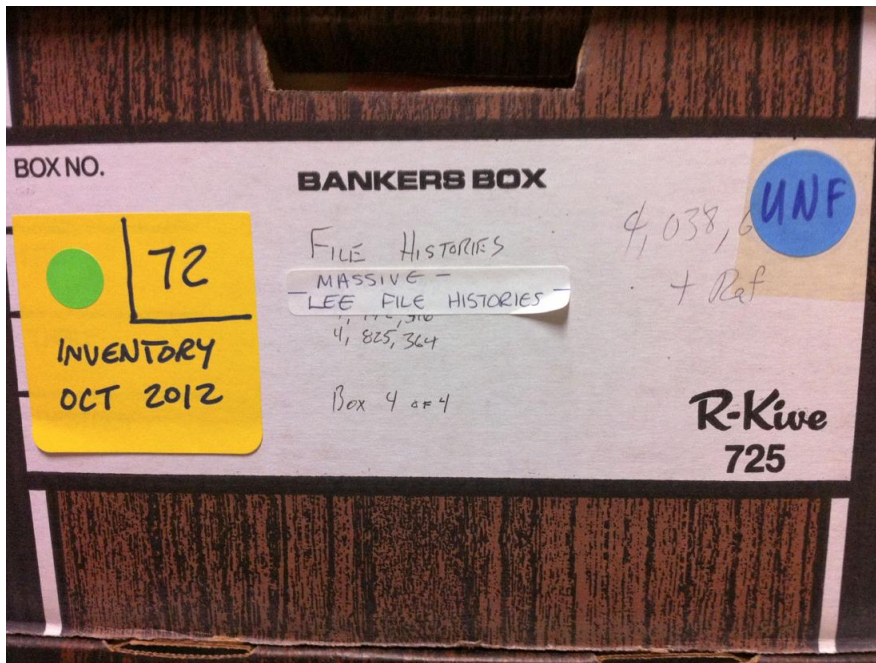 BOX NO.
BANKERS BOX
UNF
72
INVENTORY
OCT 2012
FILE HISTORIES
MASSIVE -
LEE FILE HISTORIES
4, 825, 364
Box 4 OF 4
4, 038, 6
+ Ref
R-Kive
725